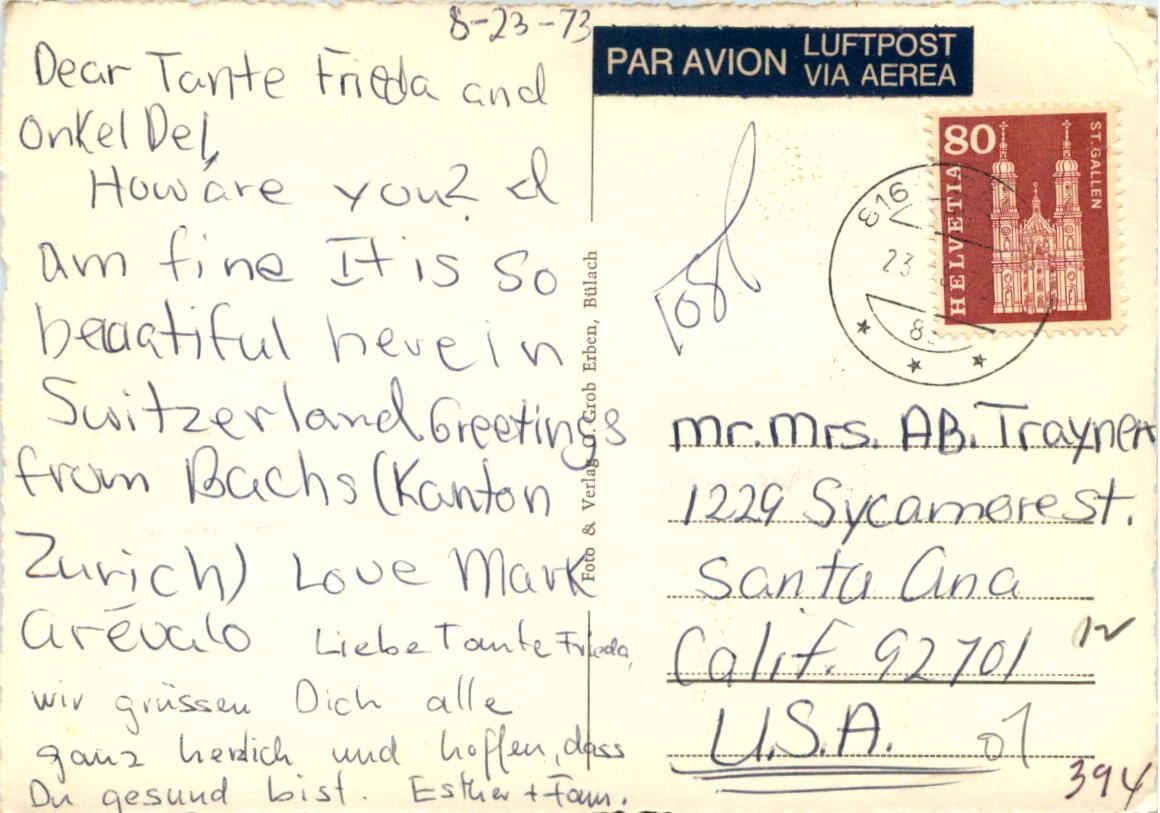 8-23-73
Dear Tante Frieda and
Onkel Del,
How are you? I
am fine It is so
beautiful here in
Switzerland Greetings
from Bachs (Kanton
Zurich) Love Mark
Arévalo
Liebe Tante Frieda,
wir grüssen Dich alle
ganz herzlich und hoffen, dass
Du gesund bist. Esther + Fam.
Foto & Verlag O. Grob Erben, Bülach
PAR AVION LUFTPOST
VIA AEREA
80
HELVETIA
ST. GALLEN
816
23
8
mr. Mrs. AB. Trayner
1229 Sycamore st.
Santa Ana
Calif. 92701
U.S.A.
01
394